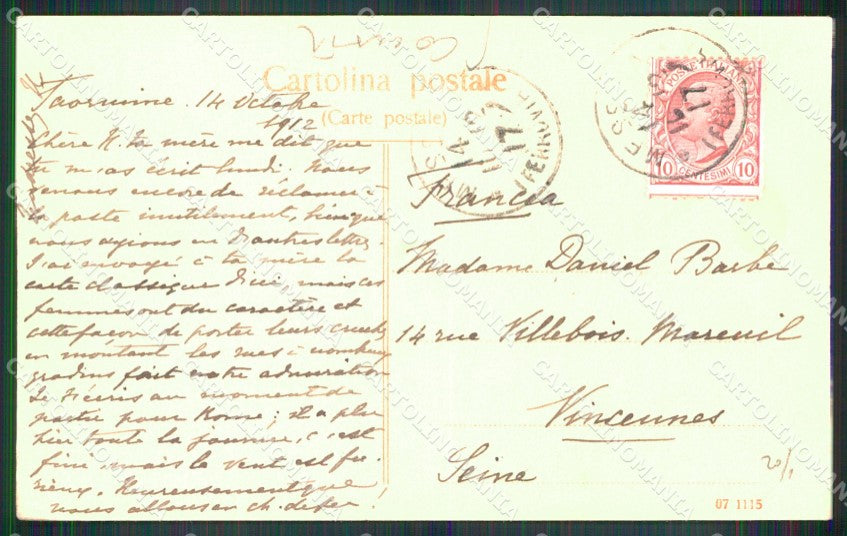 Cartolina postale
(Carte postale)
Taormine. 14 Octobre
1912
Chère K. ta mère me dit que
tu m'as écrit lundi. Nous
venons encore de réclamer à
la poste inutilement, bien que
nous ayions eu d'autres lettres.
J'ai envoyé à ta mère la
carte classique d'ici, mais ces
femmes ont du caractère et
cette façon de porter leurs cruches
en montant les rues à nombreux
gradins fait notre admiration
Je t'écris au moment de
partir pour Rome; il a plu
hier toute la journée, c'est
fini, mais le vent est fu-
rieux. Heureusement que
nous allons en ch. de fer!
Francia
Madame Daniel Barbe
14 rue Villebois Mareuil
Vincennes
Seine
POSTE ITALIANE
10 CENTESIMI 10
MESSINA
(FERROVIA)
MESSINA
(FERROVIA)
07 1115
CARTOLINOMANIA